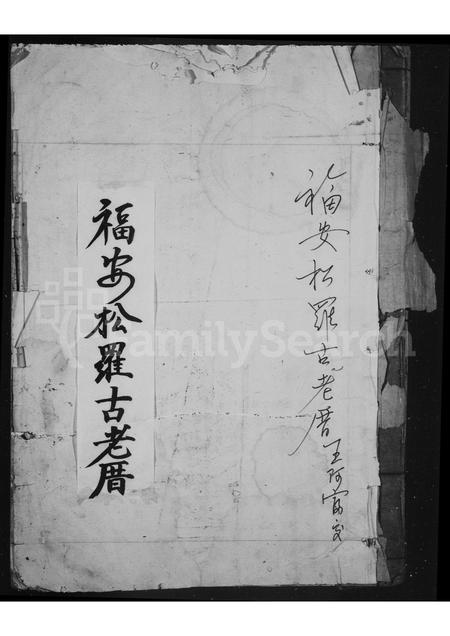 福安松羅古老厝王阿富交
福安松羅古老厝
FamilySearch